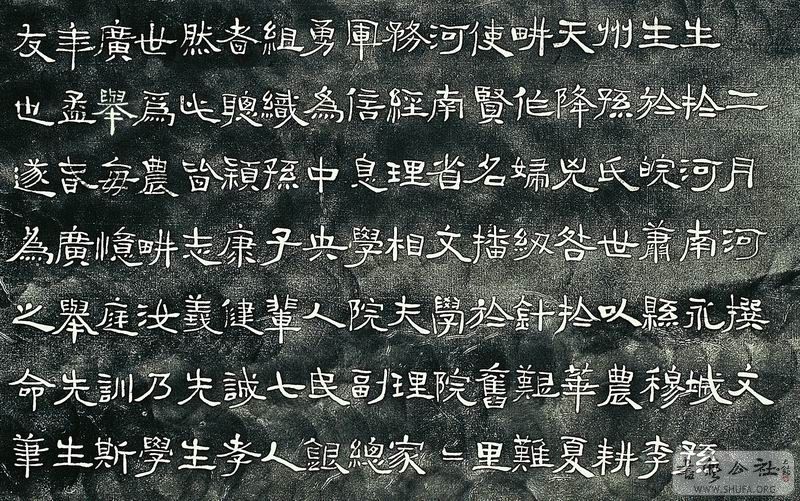 二月河撰文
生於河南永城孫
生於皖蕭縣穆李
州孫氏世以農耕
天降兇咎於華夏
畊作婦級針艱難
使賢名播於舊里
河南省文學院〻
務經理相夫理家
軍信息學院副總
勇為中央人民銀
組織孫子輩七人
者聰穎康健誠孝
然此皆志義先生
世為農畊汝乃學
廣舉每憶庭訓斯
年孟春廣舉先生
友也遂為之命筆
公社
WWW.SHUFA.ORG